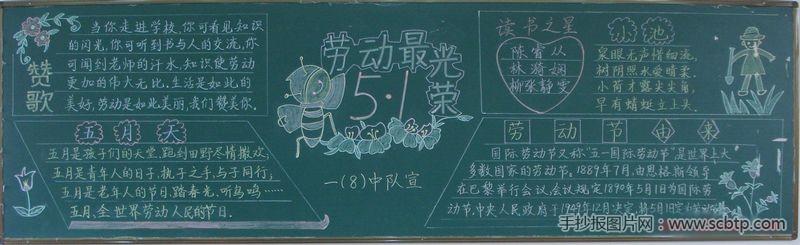 赞歌
当你走进学校,你可看见知识
的闪光,你可听到书与人的交流,你
可闻到老师的汗水,知识使劳动
更加的伟大无比,生活是如此的
美好,劳动是如此美丽,我们赞美你。
五月天
五月是孩子们的天堂,跑到田野尽情撒欢;
五月是青年人的日子,执子之手,与子同行;
五月是老年人的节日,踏春光,听鸟鸣……
五月,全世界劳动人民的节日。
劳动最光荣
5·1
一(8)中队宣
读书之星
陈雷从
林漪娴
柳张静雯
小池
泉眼无声惜细流,
树阴照水爱晴柔。
小荷才露尖尖角,
早有蜻蜓立上头。
劳动节由来
国际劳动节又称“五一国际劳动节”,是世界上大
多数国家的劳动节。1889年7月,由恩格斯领导
在巴黎举行会议,会议规定1890年5月1日为国际劳
动节,中央人民政府于1949年12月决定,将5月1日定为劳动
手抄报图片网:www.scbtp.com